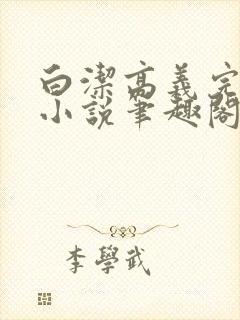 白潔高義完
小説筆趣閣
李學武